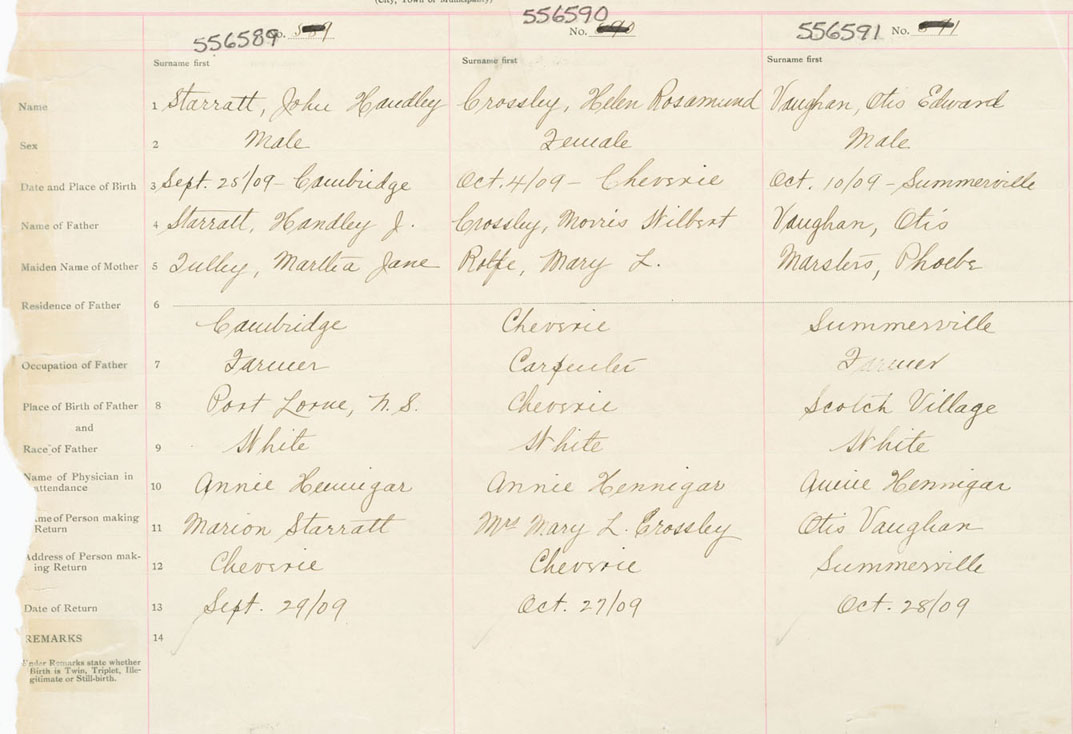 (City, Town or Municipality)
556589 No. 556590 No. 556591 No.
Surname first Surname first Surname first
Name 1 Starratt, John Handley Crossley, Helen Rosamund Vaughan, Otis Edward
Sex 2 Male Female Male
Date and Place of Birth 3 Sept. 25/09 - Cambridge Oct. 4/09 - Cheverie Oct. 10/09 - Summerville
Name of Father 4 Starratt, Handley J. Crossley, Morris Wilbert Vaughan, Otis
Maiden Name of Mother 5 Tulley, Martha Jane Rolfe, Mary L. Marsters, Phoebe
Residence of Father 6
Cambridge Cheverie Summerville
Occupation of Father 7 Farmer Carpenter Farmer
Place of Birth of Father 8 Port Lorne, N.S. Cheverie Scotch Village
and
Race of Father 9 White White White
Name of Physician in
attendance 10 Annie Hennigar Annie Hennigar Annie Hennigar
me of Person making
Return 11 Marion Starratt Mrs Mary L. Crossley Otis Vaughan
Address of Person mak-
ing Return 12 Cheverie Cheverie Summerville
Date of Return 13 Sept. 29/09 Oct. 27/09 Oct. 28/09
REMARKS 14
Under Remarks state whether
Birth is Twin, Triplet, Ille-
gitimate or Still-birth.